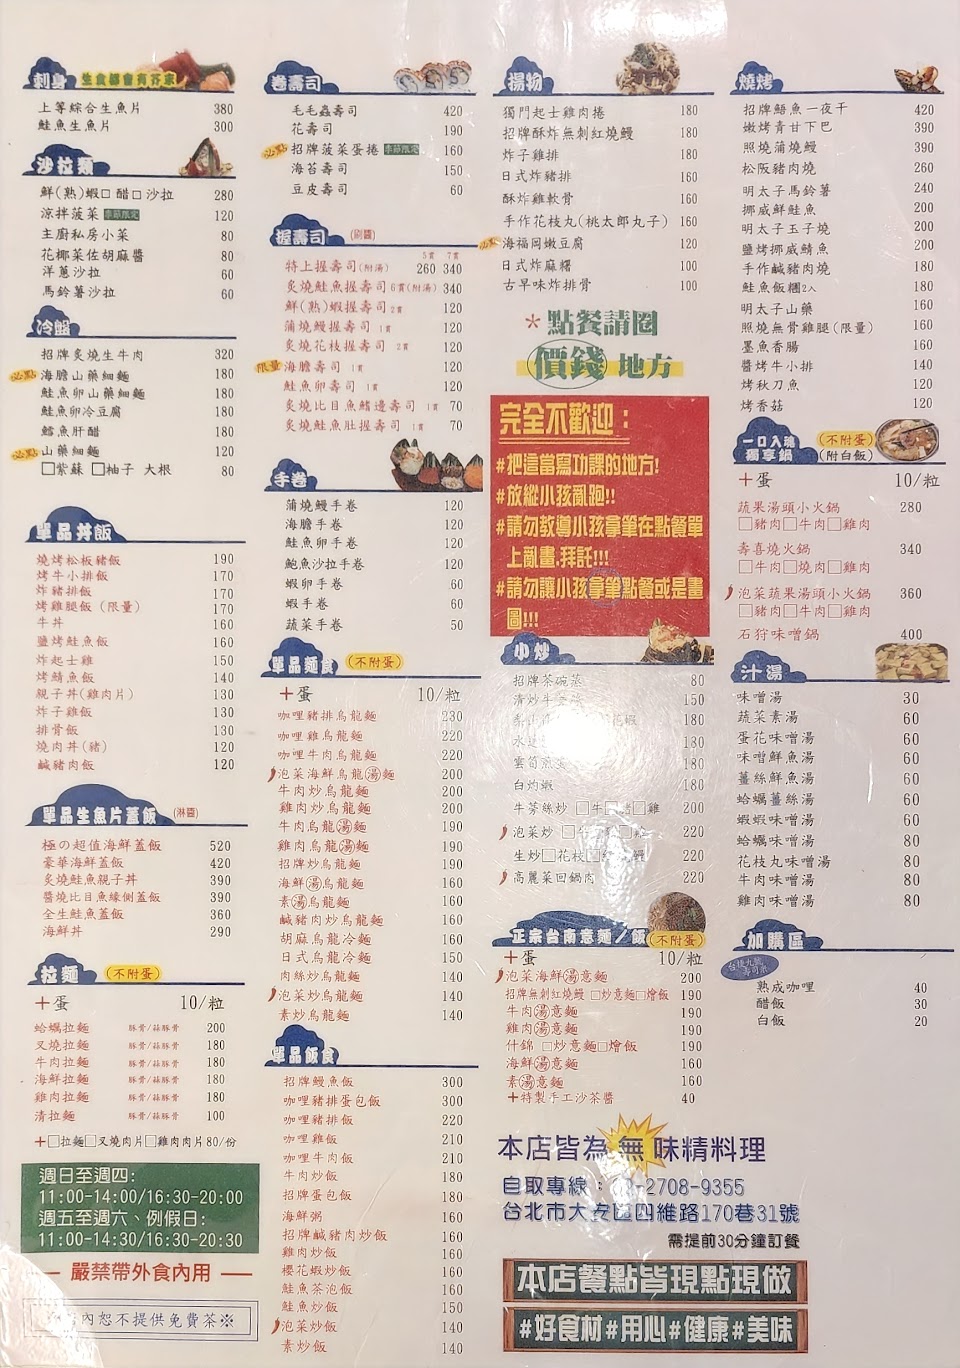 刺身 生食都會有芥末
上等綜合生魚片 380
鮭魚生魚片 300
沙拉類
鮮(熟)蝦□ 醋□ 沙拉 280
涼拌菠菜 季節限定 120
主廚私房小菜 80
花椰菜佐胡麻醬 80
洋蔥沙拉 60
馬鈴薯沙拉 60
冷盤
招牌炙燒生牛肉 320
必點 海膽山藥細麵 180
鮭魚卵山藥細麵 180
鮭魚卵冷豆腐 180
鱈魚肝醋 180
必點 山藥細麵 120
□紫蘇 □柚子 大根 80
單品丼飯
燒烤松板豬飯 190
烤牛小排飯 170
炸豬排飯 170
烤雞腿飯(限量) 170
牛丼 160
鹽烤鮭魚飯 160
炸起士雞 150
烤鯖魚飯 140
親子丼(雞肉片) 130
炸子雞飯 130
排骨飯 130
燒肉丼(豬) 120
鹹豬肉飯 120
單品生魚片蓋飯 (淋醬)
極の超值海鮮蓋飯 520
豪華海鮮蓋飯 420
炙燒鮭魚親子丼 390
醬燒比目魚緣側蓋飯 390
全生鮭魚蓋飯 360
海鮮丼 290
拉麵 (不附蛋)
+蛋 10/粒
蛤蠣拉麵 豚骨/蒜豚骨 200
叉燒拉麵 豚骨/蒜豚骨 180
牛肉拉麵 豚骨/蒜豚骨 180
海鮮拉麵 豚骨/蒜豚骨 180
雞肉拉麵 豚骨/蒜豚骨 180
清拉麵 豚骨/蒜豚骨 100
+□拉麵□叉燒肉片□雞肉肉片80/份
週日至週四:
11:00-14:00/16:30-20:00
週五至週六、例假日:
11:00-14:30/16:30-20:30
— 嚴禁帶外食內用 —
內恕不提供免費茶※
卷壽司
毛毛蟲壽司 420
花壽司 190
必點 招牌菠菜蛋捲 季節限定 160
海苔壽司 150
豆皮壽司 60
握壽司 (刷醬)
5貫 7貫
特上握壽司(附湯) 260 340
炙燒鮭魚握壽司6貫(附湯) 340
鮮(熟)蝦握壽司2貫 120
蒲燒鰻握壽司 1貫 120
炙燒花枝握壽司 2貫 120
限量 海膽壽司 1貫 120
鮭魚卵壽司 1貫 120
炙燒比目魚鰭邊壽司 1貫 70
炙燒鮭魚肚握壽司 1貫 70
手卷
蒲燒鰻手卷 120
海膽手卷 120
鮭魚卵手卷 120
鮑魚沙拉手卷 120
蝦卵手卷 60
蝦手卷 60
蔬菜手卷 50
單品麵食 (不附蛋)
+蛋 10/粒
咖哩豬排烏龍麵 230
咖哩雞烏龍麵 220
咖哩牛肉烏龍麵 220
泡菜海鮮烏龍湯麵 200
牛肉炒烏龍麵 200
雞肉炒烏龍麵 200
牛肉烏龍湯麵 190
雞肉烏龍湯麵 190
招牌炒烏龍麵 190
海鮮湯烏龍麵 160
素湯烏龍麵 160
鹹豬肉炒烏龍麵 160
胡麻烏龍冷麵 160
日式烏龍冷麵 150
肉絲炒烏龍麵 140
泡菜炒烏龍麵 140
素炒烏龍麵 140
單品飯食
招牌鰻魚飯 300
咖哩豬排蛋包飯 300
咖哩豬排飯 220
咖哩雞飯 210
咖哩牛肉飯 210
牛肉炒飯 180
招牌蛋包飯 180
海鮮粥 160
招牌鹹豬肉炒飯 160
雞肉炒飯 160
櫻花蝦炒飯 160
鮭魚茶泡飯 160
鮭魚炒飯 150
泡菜炒飯 140
素炒飯 140
揚物
獨門起士雞肉捲 180
招牌酥炸無刺紅燒鰻 180
炸子雞排 180
日式炸豬排 160
酥炸雞軟骨 160
手作花枝丸(桃太郎丸子) 160
必點 海福岡嫩豆腐 120
日式炸麻糬 100
古早味炸排骨 100
*點餐請圈
價錢 地方
完全不歡迎:
#把這當寫功課的地方!
#放縱小孩亂跑!!
#請勿教導小孩拿筆在點餐單
上亂畫.拜託!!!
#請勿讓小孩拿筆點餐或是畫
圖!!!
小炒
招牌茶碗蒸 80
清炒牛 150
花蝦 180
水 180
180
白灼蝦 180
牛蒡絲炒 □牛□豬□雞 200
泡菜炒 220
生炒□花枝□ 220
高麗菜回鍋肉 220
正宗台南意麵/飯 (不附蛋)
+蛋 10/粒
泡菜海鮮湯意麵 200
招牌無刺紅燒鰻 □炒意麵□燴飯 190
牛肉湯意麵 190
雞肉湯意麵 190
什錦 □炒意麵□燴飯 190
海鮮湯意麵 160
素湯意麵 160
+特製手工沙茶醬 40
本店皆為 無 味精料理
自取專線: -2708-9355
台北市大安區四維路170巷31號
需提前30分鐘訂餐
本店餐點皆現點現做
#好食材#用心#健康#美味
燒烤
招牌鯃魚一夜干 420
嫩烤青甘下巴 390
照燒蒲燒鰻 390
松阪豬肉燒 260
明太子馬鈴薯 240
挪威鮮鮭魚 200
明太子玉子燒 200
鹽烤挪威鯖魚 200
手作鹹豬肉燒 180
鮭魚飯糰2入 180
明太子山藥 160
照燒無骨雞腿(限量) 160
墨魚香腸 160
醬烤牛小排 140
烤秋刀魚 120
烤香菇 120
一口入魂
獨享鍋 (不附蛋)
(附白飯)
+蛋 10/粒
蔬果湯頭小火鍋 280
□豬肉□牛肉□雞肉
壽喜燒火鍋 340
□牛肉□燒肉□雞肉
泡菜蔬果湯頭小火鍋 360
□豬肉□牛肉□雞肉
石狩味噌鍋 400
汁湯
味噌湯 30
蔬菜素湯 60
蛋花味噌湯 60
味噌鮮魚湯 60
薑絲鮮魚湯 60
蛤蠣薑絲湯 60
蝦蝦味噌湯 60
蛤蠣味噌湯 80
花枝丸味噌湯 80
牛肉味噌湯 80
雞肉味噌湯 80
加購區
熟成咖哩 40
醋飯 30
白飯 20